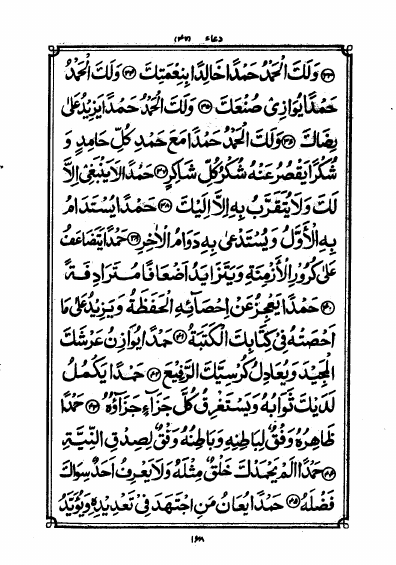 دعاء (٤٧)
﴿٣٣﴾ وَلَكَ الْحَمْدُ حَمْدًا خَالِدًا بِنِعْمَتِكَ ﴿٣٤﴾ وَلَكَ الْحَمْدُ
حَمْدًا يُوَازِي صُنْعَكَ ﴿٣٥﴾ وَلَكَ الْحَمْدُ حَمْدًا يَزِيدُ عَلَى
رِضَاكَ ﴿٣٦﴾ وَلَكَ الْحَمْدُ حَمْدًا مَعَ حَمْدِ كُلِّ حَامِدٍ وَ
شُكْرًا يَقْصُرُ عَنْهُ شُكْرُ كُلِّ شَاكِرٍ ﴿٣٧﴾ حَمْدًا لَا يَنْبَغِي إِلَّا
لَكَ وَلَا يُتَقَرَّبُ بِهِ إِلَّا إِلَيْكَ ﴿٣٨﴾ حَمْدًا يُسْتَدَامُ
بِهِ الْأَوَّلُ وَيُسْتَدْعَى بِهِ دَوَامُ الْآخِرِ ﴿٣٩﴾ حَمْدًا يَتَضَاعَفُ
عَلَى كُرُورِ الْأَزْمِنَةِ وَيَتَزَايَدُ أَضْعَافًا مُتَرَادِفَةً
﴿٤٠﴾ حَمْدًا يَعْجِزُ عَنْ إِحْصَائِهِ الْحَفَظَةُ وَيَزِيدُ عَلَى مَا
أَحْصَتْهُ فِي كِتَابِكَ الْكَتَبَةُ ﴿٤١﴾ حَمْدًا يُوَازِنُ عَرْشَكَ
الْمَجِيدَ وَيُعَادِلُ كُرْسِيَّكَ الرَّفِيعَ ﴿٤٢﴾ حَمْدًا يَكْمُلُ
لَدَيْكَ ثَوَابُهُ وَيَسْتَغْرِقُ كُلَّ جَزَاءٍ جَزَاؤُهُ ﴿٤٣﴾ حَمْدًا
ظَاهِرُهُ وَفْقٌ لِبَاطِنِهِ وَبَاطِنُهُ وَفْقٌ لِصِدْقِ النِّيَّةِ
﴿٤٤﴾ حَمْدًا لَمْ يَحْمَدْكَ خَلْقٌ مِثْلَهُ وَلَا يَعْرِفُ أَحَدٌ سِوَاكَ
فَضْلَهُ ﴿٤٥﴾ حَمْدًا يُعَانُ مَنِ اجْتَهَدَ فِي تَعْدِيدِهِ وَيُؤَيَّدُ